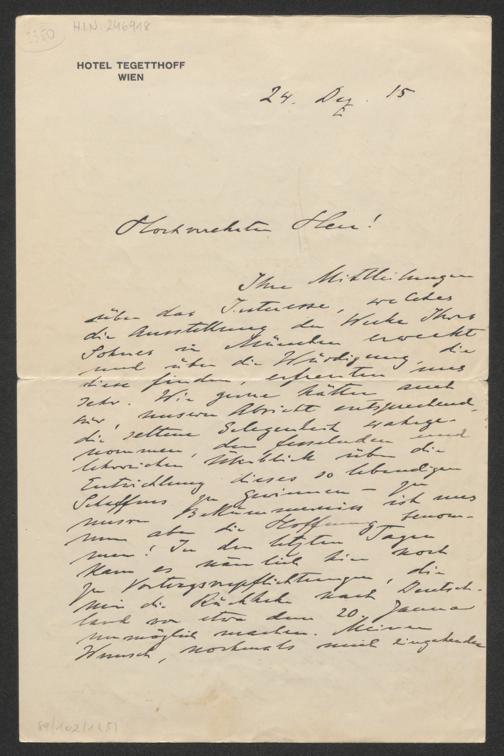 2380
H.I.N. 246918
HOTEL TEGETTHOFF
WIEN
24. Dez. 15
Hochverehrter Herr!
Ihre Mitteilungen
über das Interesse, welches
die Ausstellung der Werke Ihres
Sohnes in München erweckt
und über die Würdigung, die
diese finden, erfreuten uns
sehr. Wie gerne hätten auch
wir, unserer Absicht entsprechend,
die seltene Gelegenheit wahrge-
nommen, den fesselnden und
lehrreichen Überblick über die
Entwicklung dieses so lebendigen
Schaffens zu gewinnen – zu
unserm Bekümmernis ist uns
nun aber die Hoffnung benom-
men! In den letzten Tagen
kam es nämlich hier noch
zu Vortragsverpflichtungen, die
mir die Rückkehr nach Deutsch-
land vor etwa dem 20. Januar
unmöglich machen. Meinen
Wunsch, nochmals und eingehender